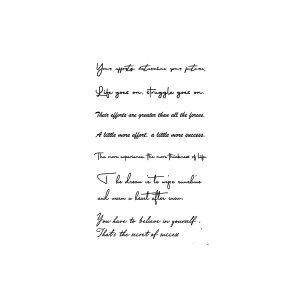 Your efforts determine your future.
Life goes on, struggle goes on.
Their efforts are greater than all the forces.
A little more effort, a little more success.
The more experience, the more thickness of life.
The dream is to wipe sunshine
and warm a heart after snow.
You have to believe in yourself.
That's the secret of success